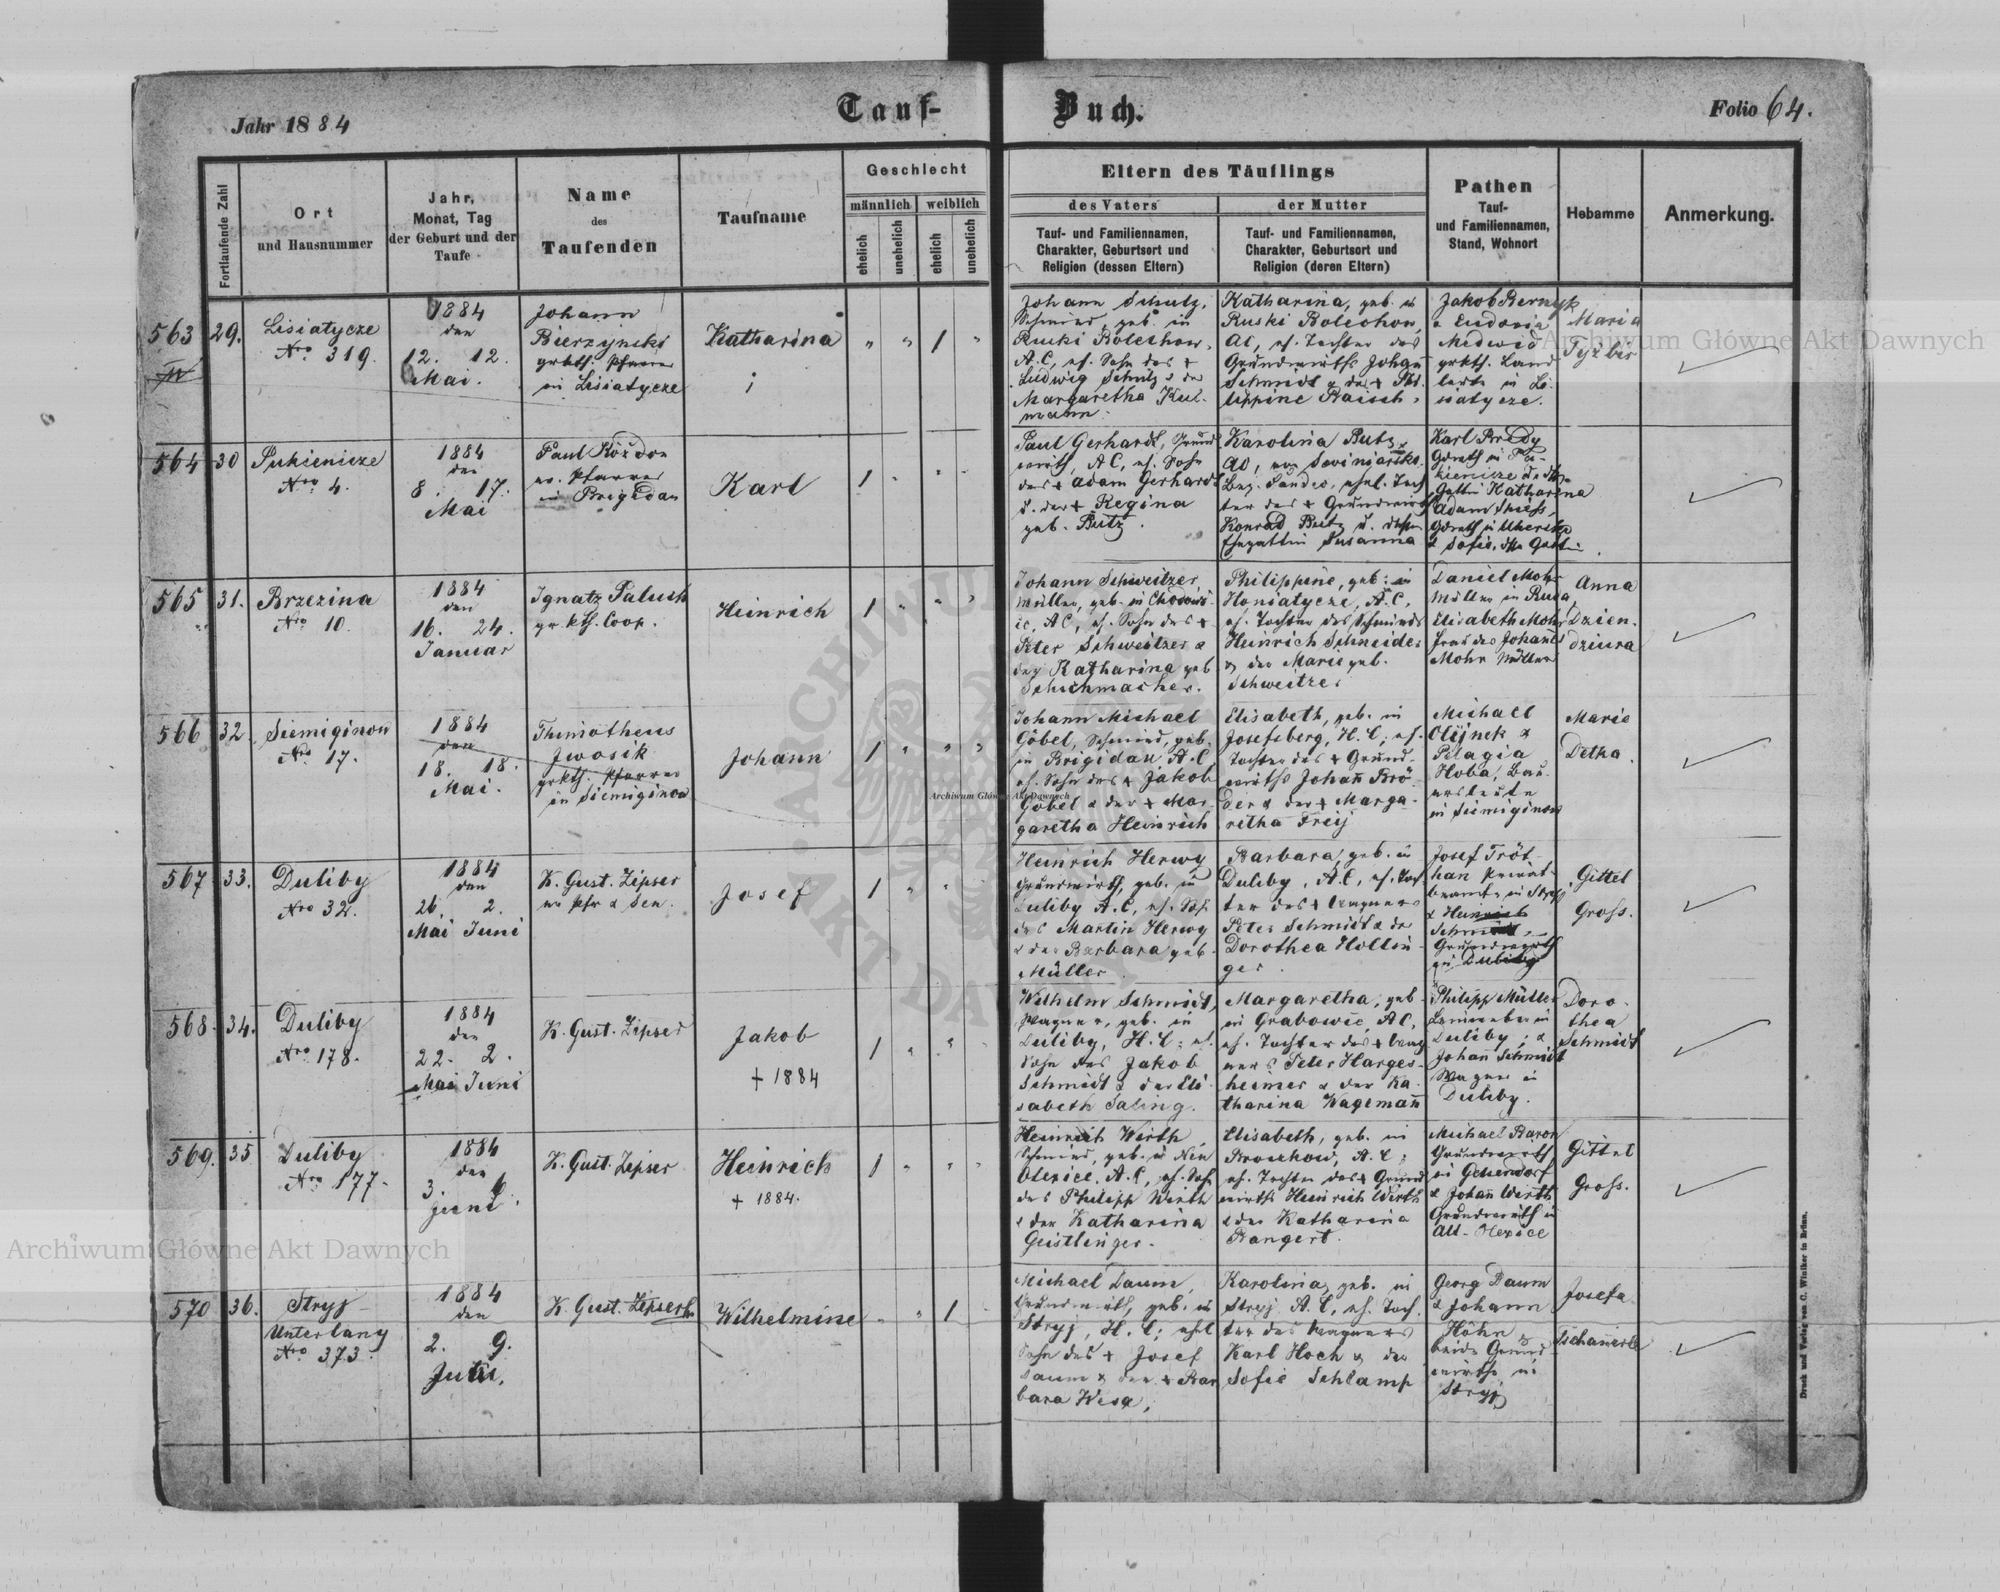 Jahr 1884
Tauf-
Buch.
Folio 64.
Fortlaufende Zahl
Ort
und Hausnummer
Jahr,
Monat, Tag
der Geburt und der
Taufe
Name
des
Taufenden
Taufname
Geschlecht
männlich
weiblich
ehelich
unehelich
ehelich
unehelich
Eltern des Täuflings
des Vaters
der Mutter
Tauf- und Familiennamen,
Charakter, Geburtsort und
Religion (dessen Eltern)
Tauf- und Familiennamen,
Charakter, Geburtsort und
Religion (deren Eltern)
Pathen
Tauf-
und Familiennamen,
Stand, Wohnort
Hebamme
Anmerkung.
563
29.
Lisiatycze
Nro 319.
1884
den
12. 12.
Mai.
Johann
Bierzynski
grkth. Pfarrer
in Lisiatycze
Katharina
Johann Schulz,
Schmied, geb. in
Ruski Bolechow,
A.C., eh. Sohn des +
Ludwig Schulz & der
Margaretha Kul-
mann.
Katharina, geb. in
Ruski Bolechow,
AC, eh. Tochter des
Grundwirths Johann
Schmidt & der + Phi-
lippine Raisch.
Jakob Bernyk
& Eudoxia
Medwid
grkth. Land
leute in Li-
siatycze.
Maria
564
30
Pukienicze
Nro 4.
1884
den
8. 17.
Mai
Paul Kożdon
ev. Pfarrer
in Brigidau
Karl
Paul Gerhardt, Grund
wirth, AC, eh. Sohn
des + Adam Gerhardt
u. der + Regina
geb. Butz.
Karolina Butz,
AC, aus
Bez. Sandec, ehel. Toch
ter des + Grundwirth
Konrad Butz u. dessen
Ehegattin Susanna
Karl Bredy
Gdwrth in Pu-
kienicze
Gattin Katharina
Adam Thiess,
Gdwrth in Uhersko
& Sofie, Gattin
565
31.
Brzezina
Nro 10.
1884
den
16. 24.
Januar
Ignatz Palush
gr. kth. Coop.
Heinrich
Johann Schweitzer
Müller, geb. in
AC, eh. Sohn des +
Peter Schweitzer &
der Katharina geb
Schuhmacher.
Philippine, geb. in
Honiatycze, A.C.
eh. Tochter des Schmieds
Heinrich Schneider
& der Marie geb.
Schweitzer
Daniel Mohr
Müller in Ruda,
Elisabeth Mohr
Frau des Johann
Mohr Müller
Anna
Dzien-
dziura
566
32.
Siemiginow
Nro 17.
1884
den
18. 18.
Mai.
Thimotheus
Jwosik
grkth. Pfarrer
in Siemiginow
Johann
Johann Michael
Göbel, Schmied, geb.
in Brigidau A.C.
eh. Sohn des + Jakob
Göbel & der + Mar-
garetha Heinrich
Elisabeth, geb. in
Josefsberg, H.C., eh.
Tochter des + Grund-
wirths Johann Brö-
der & der + Marga-
retha Freij
Michael
Olijnek &
Pelagia
Hoba, Bau-
ersleute
in Siemiginow
Marie
Detka
567
33.
Duliby
Nro 32.
1884
den
26. 2.
Mai Juni
K. Gust. Zipser
ev Pfr & Sen.
Josef
Heinrich Herwy
Grundwirth, geb. in
Duliby A.C, eh. Sohn
des Martin Herwy
& der Barbara geb.
Müller.
Barbara, geb. in
Duliby, A.C, eh. Toch
ter des + Wagners
Peter Schmidt & der
Dorothea Hollin-
ger.
Josef Tröt-
han Privat-
beamte in Stryj
& Heinrich
Schmidt,
Grundwirth
in Duliby
Gittel
Gross.
568.
34.
Duliby
Nro 178.
1884
den
22. 2.
Mai Juni
K. Gust. Zipser
Jakob
+ 1884
Wilhelm Schmidt,
Wagner, geb. in
Duliby, H.C; eh.
Sohn des Jakob
Schmidt & der Eli-
sabeth Saling.
Margaretha, geb.
in Grabowic, AC,
eh. Tochter des + Wag
ners Peter Harges-
heimer & der Ka-
tharina Wagemann
Philipp Müller
in
Duliby, &
Johann Schmidt
Wagner in
Duliby.
Doro-
thea
Schmidt
569.
35
Duliby
Nro 177.
1884
den
3. 6.
Juni.
K. Gust. Zipser
Heinrich
+ 1884.
Heinrich Wirth
Schmied, geb. in Neu
Olexice, A.C, eh. Sohn
des Philipp Wirth
& der Katharina
Geistlinger.
Elisabeth, geb. in
Broschow, A.C;
eh. Tochter des + Grund
wirths Heinrich Wirth
& der Katharina
Bangert.
Michael Baron
Grundwirth
in Gelsendorf
& Johann Wirth
Grundwirth in
Alt-Olexice
Gittel
Gross.
570
36.
Stryj
Unterlany
Nro 373.
1884
den
2. 9.
Juni.
K. Gust. Zipser
Wilhelmine
Michael Daum,
Grundwirth, geb. in
Stryj, H.C; ehl
Sohn des + Josef
Daum & der + Bar
bara Wesa,
Karolina, geb. in
Stryj, A.C, eh. Toch
ter des Wagners
Karl Hoch & der
Sofie Schlamp
Georg Daum
& Johann
Höhn
beide Grund
wirthe in
Stryj
Josefa
Druck und Verlag von C. Winiker in Brünn.
Archiwum Główne Akt Dawnych
Archiwum Główne Akt Dawnych
Archiwum Główne Akt Dawnych